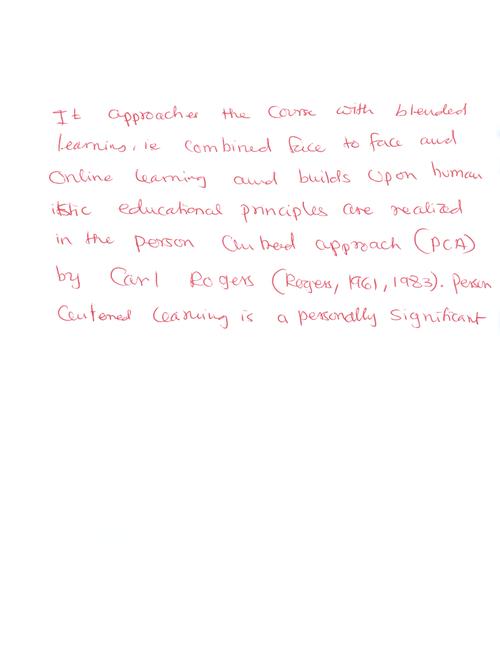 It approaches the course with blended
Learning, ie combined face to face and
Online learning and builds upon human
istic educational principles are realized
in the person Centered approach (PCA)
by Carl Rogers (Rogers, 1961, 1983). Person
Centered learning is a personally significant